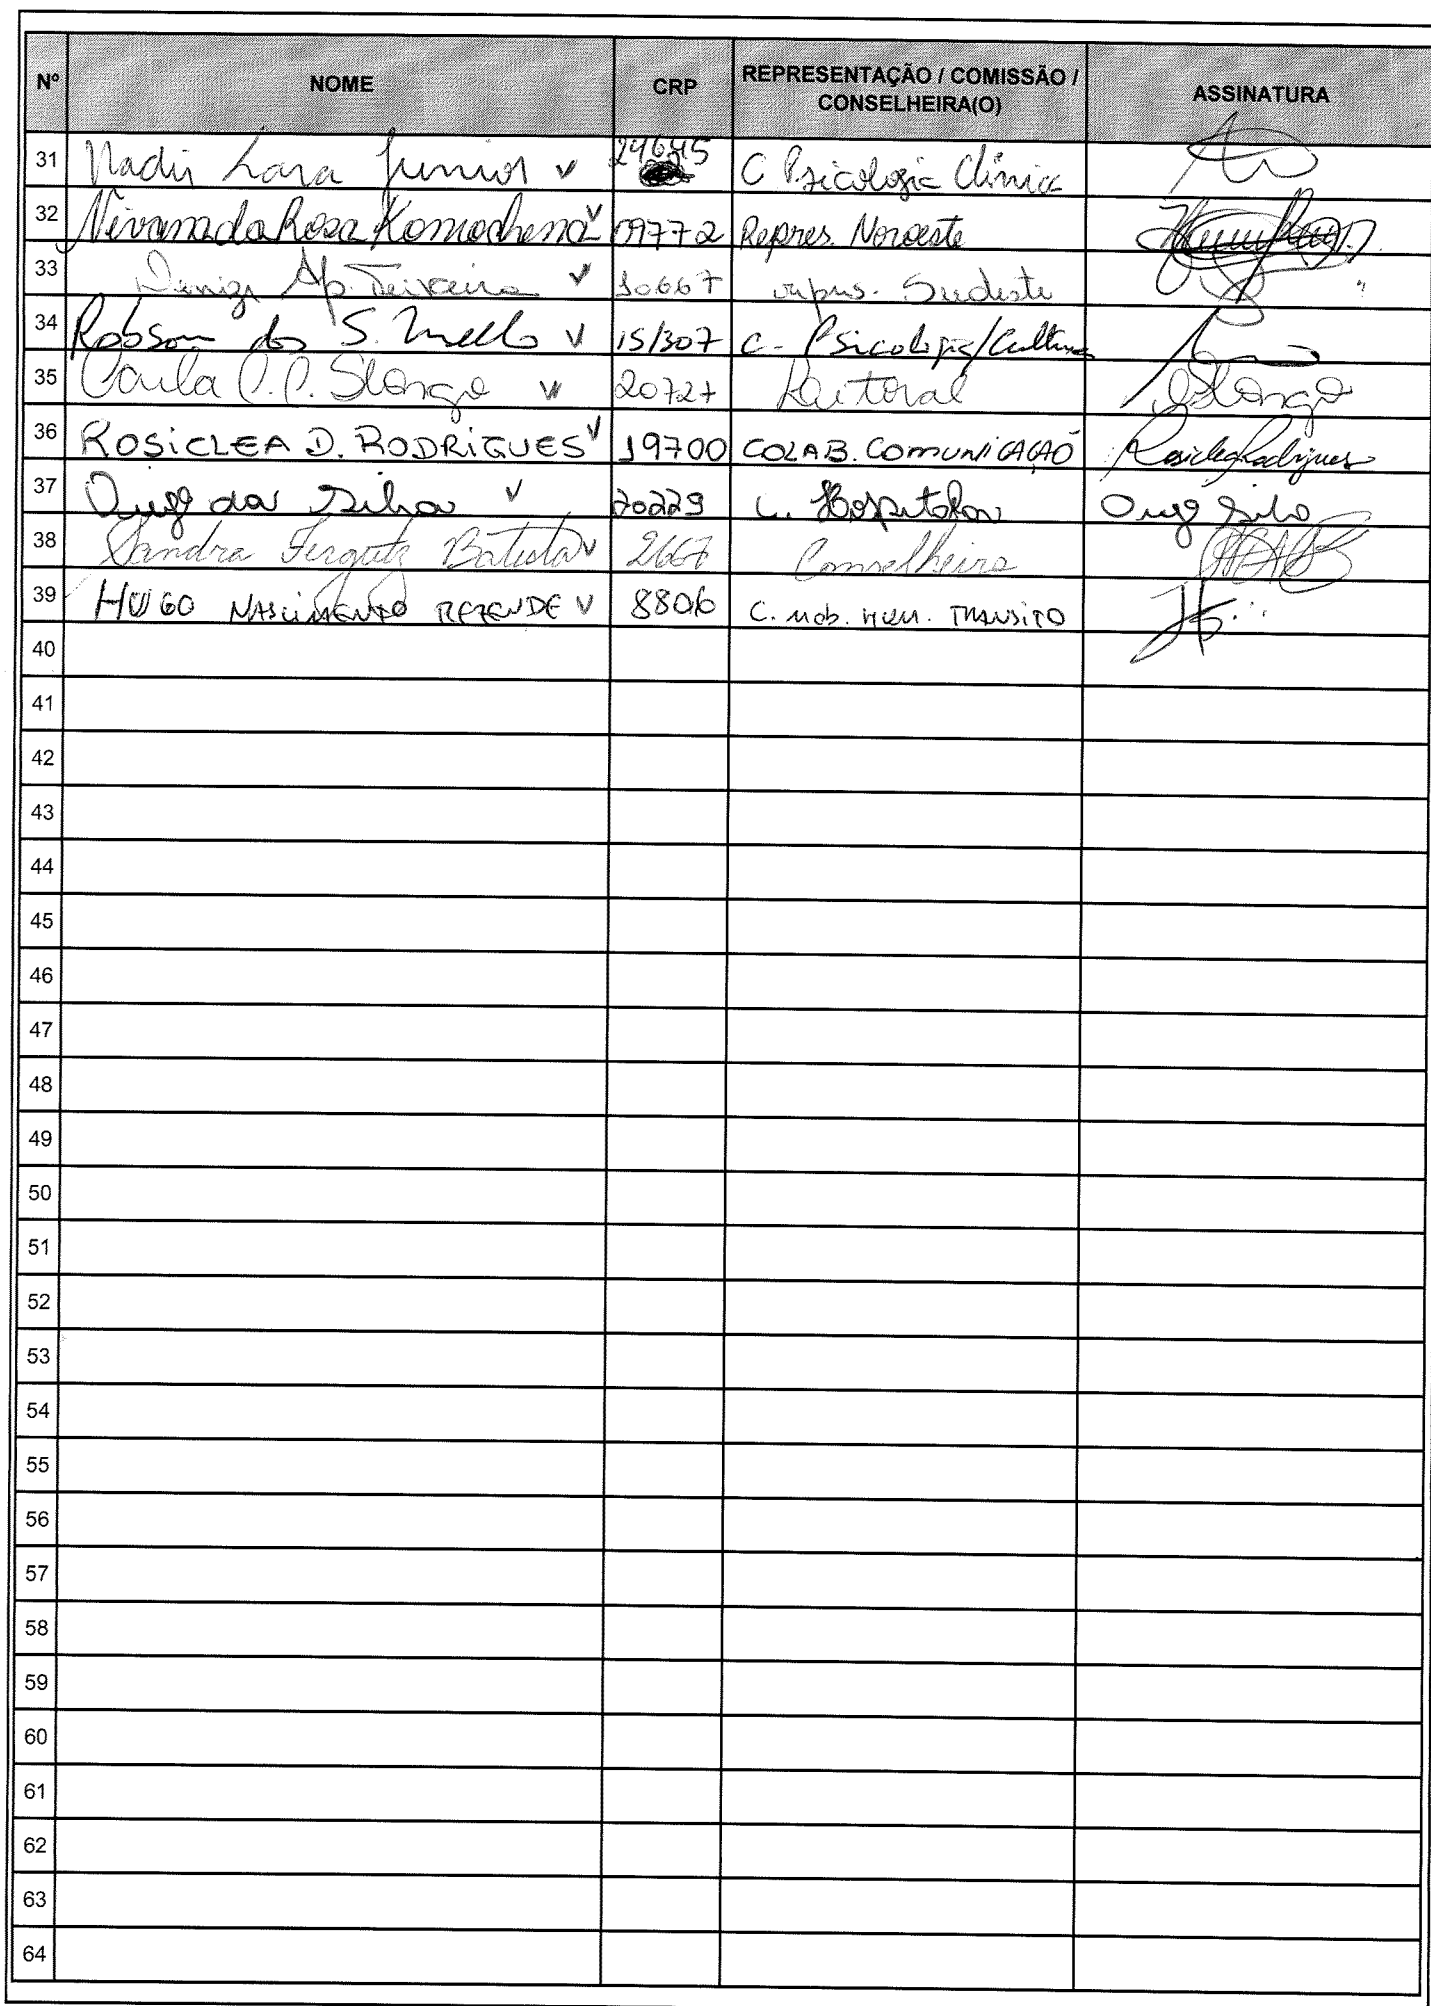 Nº NOME CRP REPRESENTAÇÃO / COMISSÃO / CONSELHEIRA(O) ASSINATURA
31 Nadir Lara Junior C Psicologia Clínica
32 da Rosa 09772 Repres. Noroeste
33 Ap. Teixeira 10667 repres. Sudeste
34 Robson dos S. Mello 15/307 C. Psicologia/Cultura
35 Paula P. P. Slongo 20727 Litoral Slongo
36 ROSICLEA D. RODRIGUES 19700 COLAB. COMUNICAÇÃO Rosiclea Rodrigues
37 da Silva 20229 C. Hospitalar Silva
38 Sandra Batista 2667 Conselheira
39 HUGO NASCIMENTO REZENDE 8806 C. MOB. HUM. TRANSITO
40
41
42
43
44
45
46
47
48
49
50
51
52
53
54
55
56
57
58
59
60
61
62
63
64